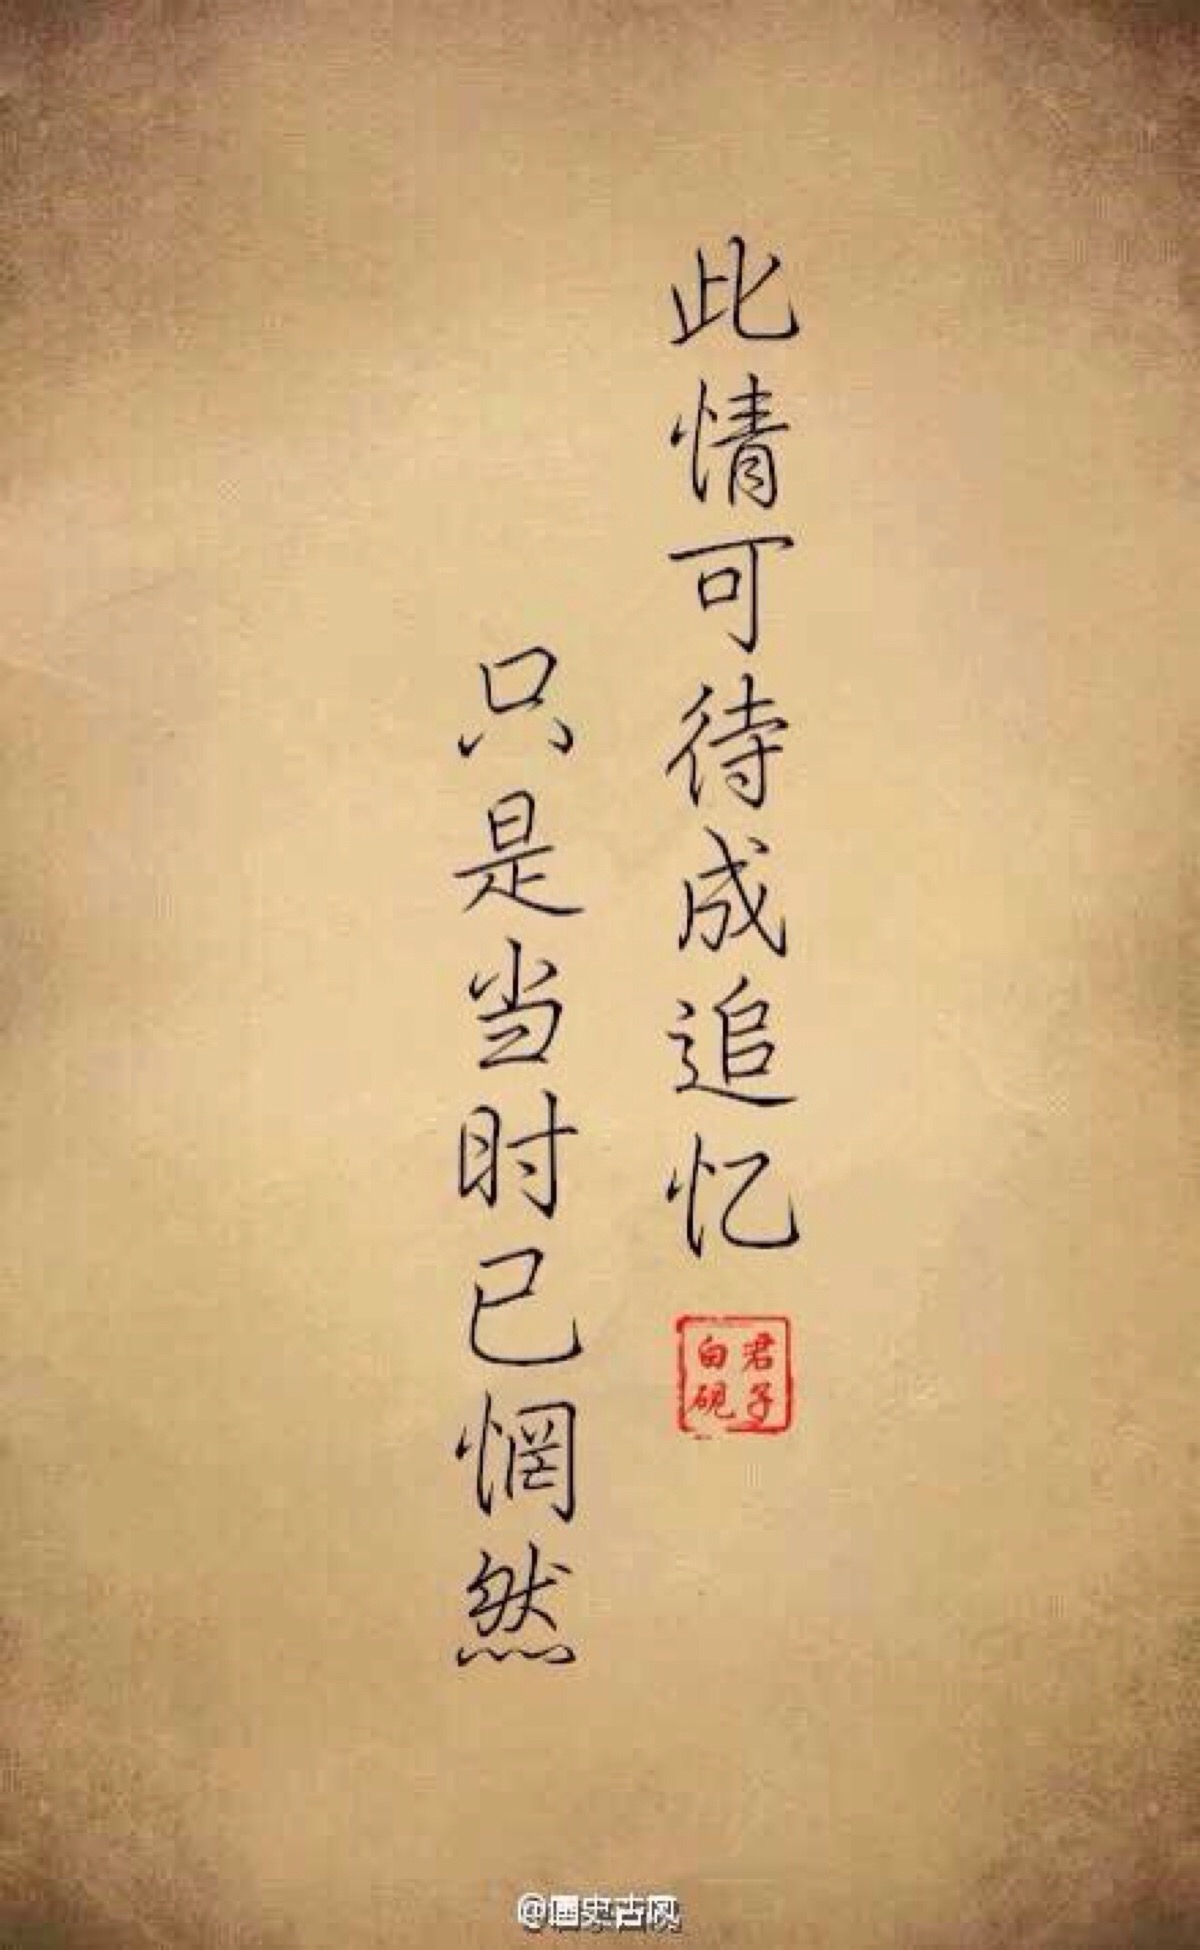 此情可待成追忆
只是当时已惘然
君子
白砚